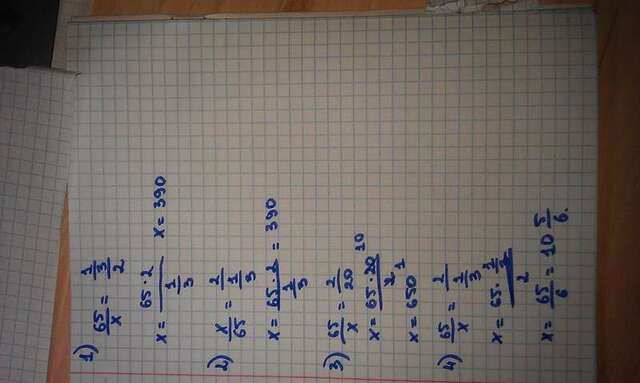 1) 65/x = 1/3/2
x = 65·2/1/3 x = 390
2) x/65 = 2/1/3
x = 65·2/1/3 = 390
3) 65/x = 2/20
x = 65·20 10/2 1
x = 650
4) 65/x = 2/1/3
x = 65·1/3/2
x = 65/6 = 10 5/6.